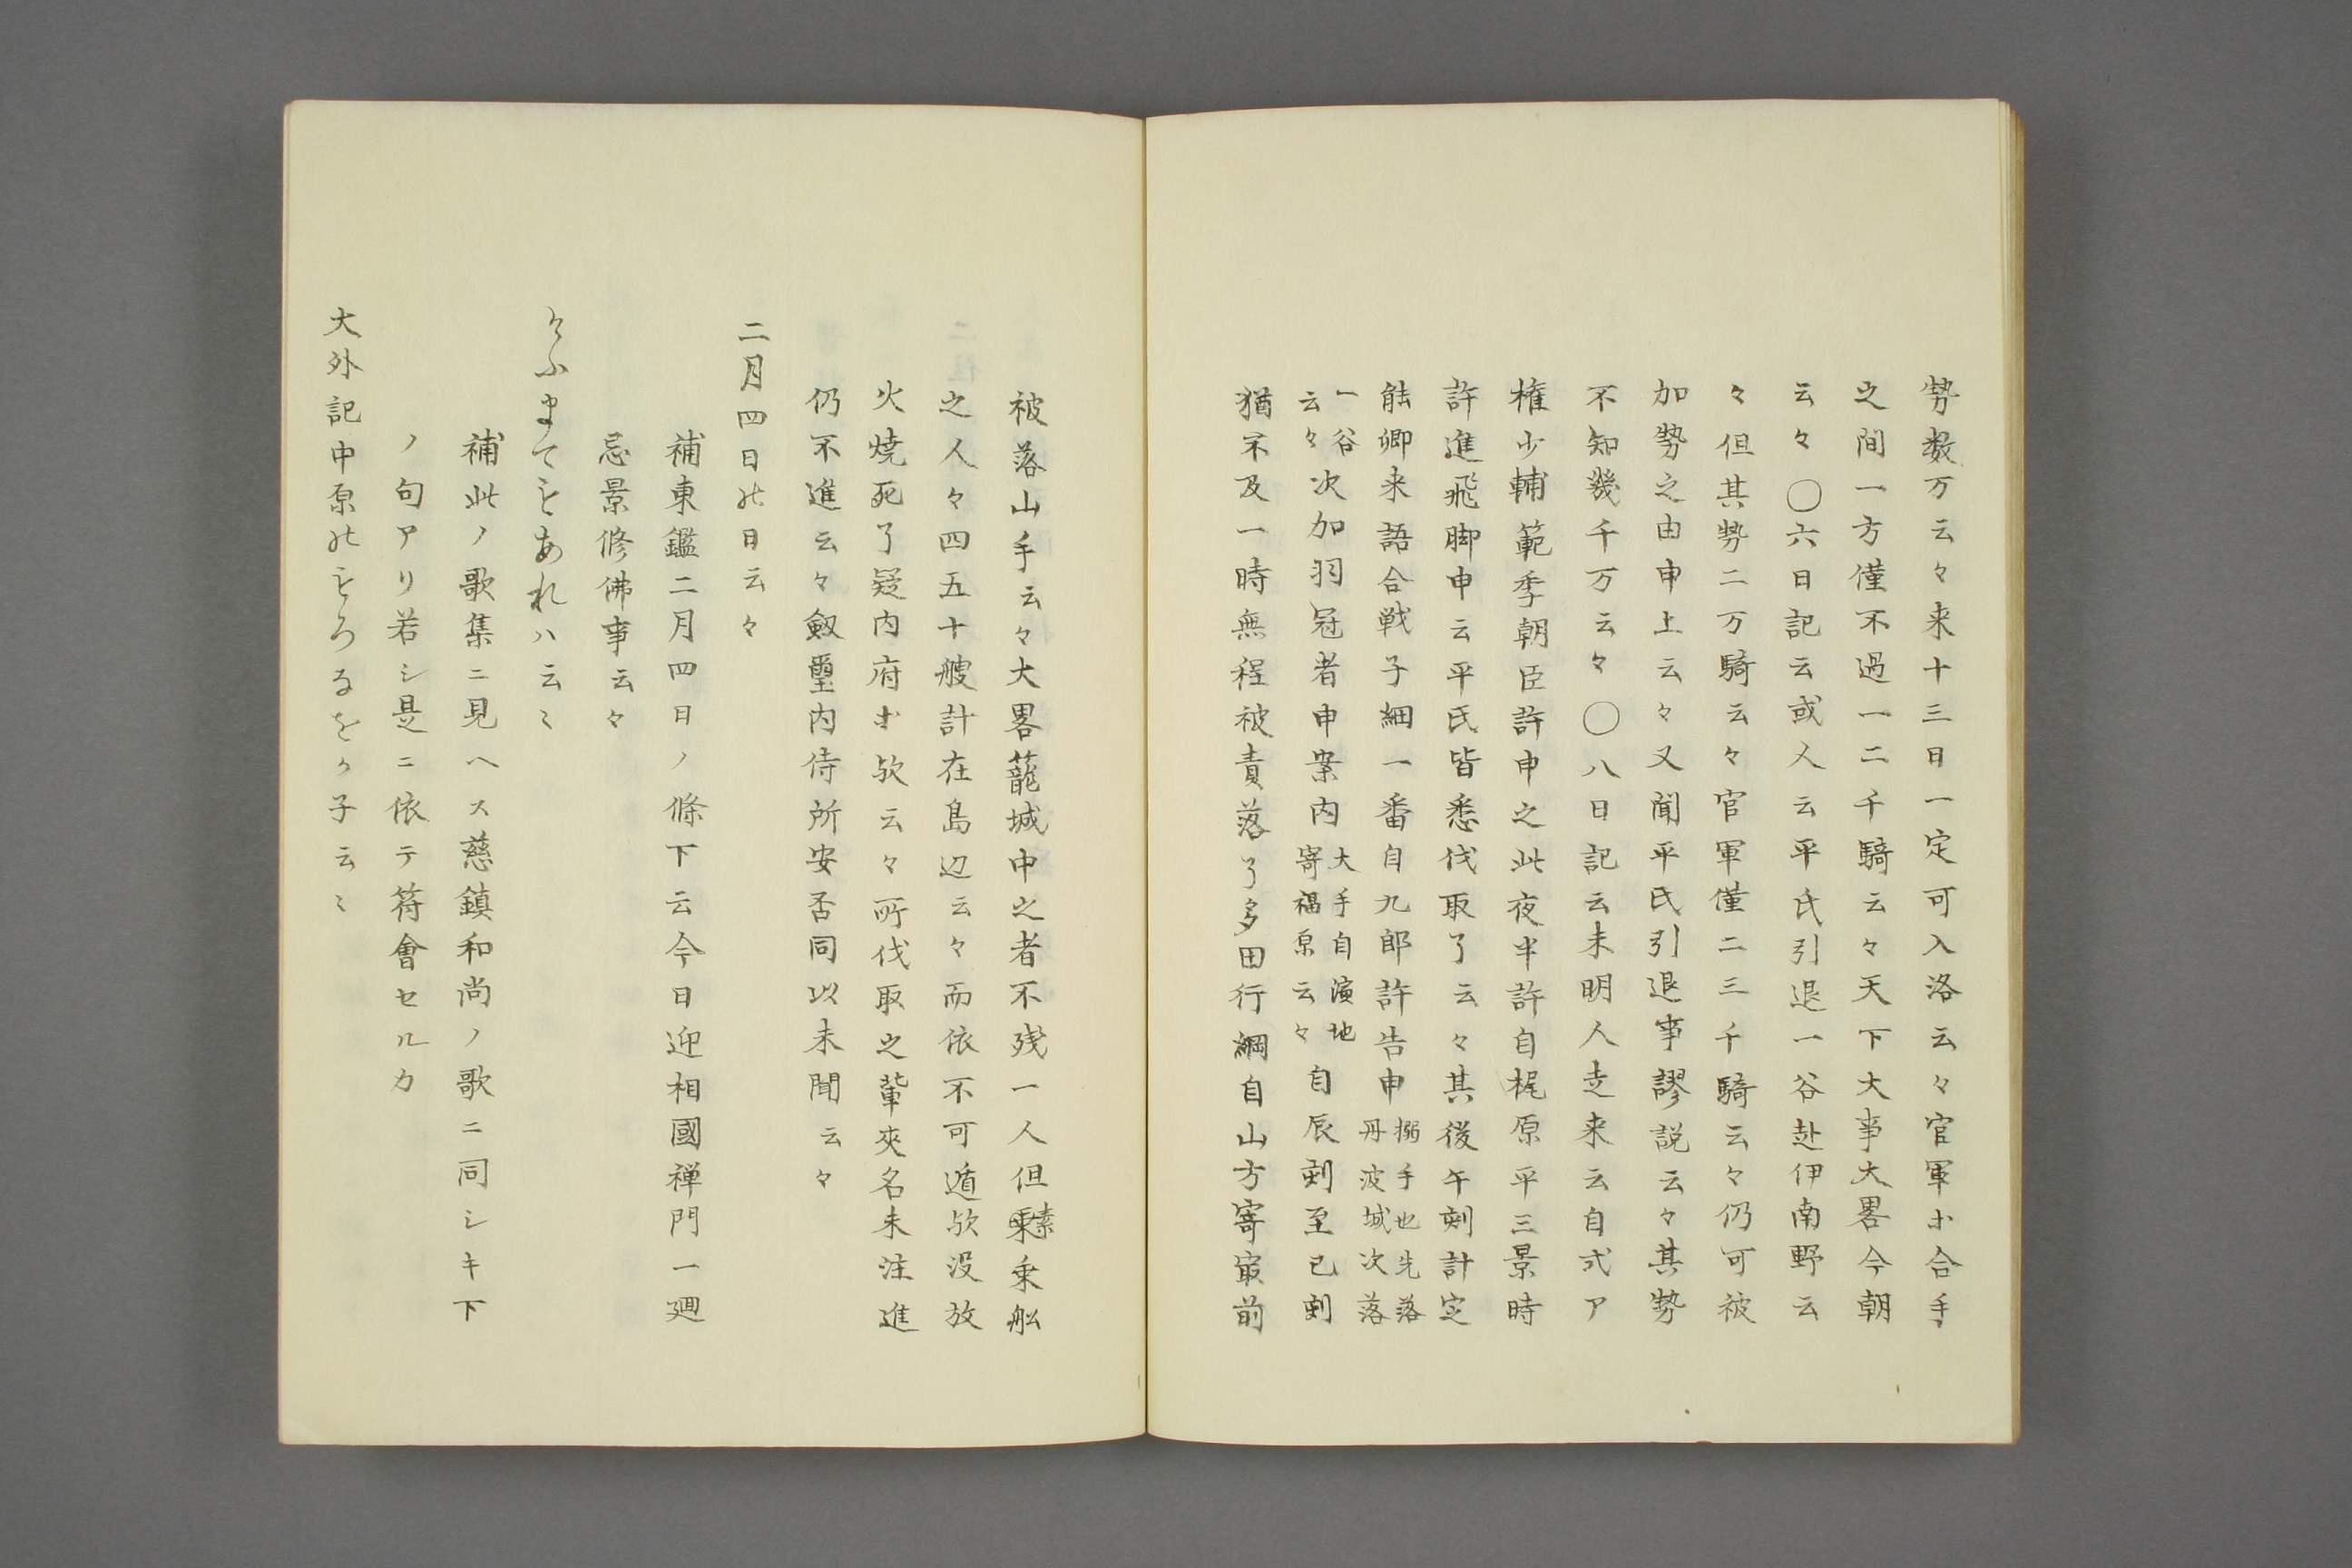 勢数万云々来十三日一定可入洛云々官軍ホ合手
之間一方僅不過一二千騎云々天下大事大畧今朝
云々〇六日記云或人云平氏引退一谷赴伊南野云
々但其勢二万騎云々官軍僅二三千騎云々仍可被
加勢之由申上云々又聞平氏引退事謬説云々其勢
不知幾千万云々〇八日記云未明人走来云自式ア
権少輔範季朝臣許申之此夜半許自梶原平三景時
許進飛脚申云平氏皆悉伐取了云々其後午刻計定
能卿来語合戦子細一番自九郎許告申搦手也先落丹波城次落
一谷云々次加羽冠者申案内大手自濱地寄福原云々自辰剋至巳剋
猶不及一時無程被責落了多田行綱自山方寄㝡前
被落山手云々大畧蘢城中之者不残一人但素乗乗船
之人々四五十艘計在島辺云々而依不可遁欤没放
火焼死了疑内府ホ欤云々所伐取之輩夾名未注進
仍不進云々劔璽内侍所安否同以未聞云々
二月四日の日云々
補東鑑二月四日ノ條下云今日迎相國禅門一廻
忌景修佛事云々
けふまてもあれハ云〻
補此ノ歌集ニ見ヘス慈鎮和尚ノ歌ニ同シキ下
ノ句アリ若シ是ニ依テ符會セルカ
大外記中原のもろなをか子云〻